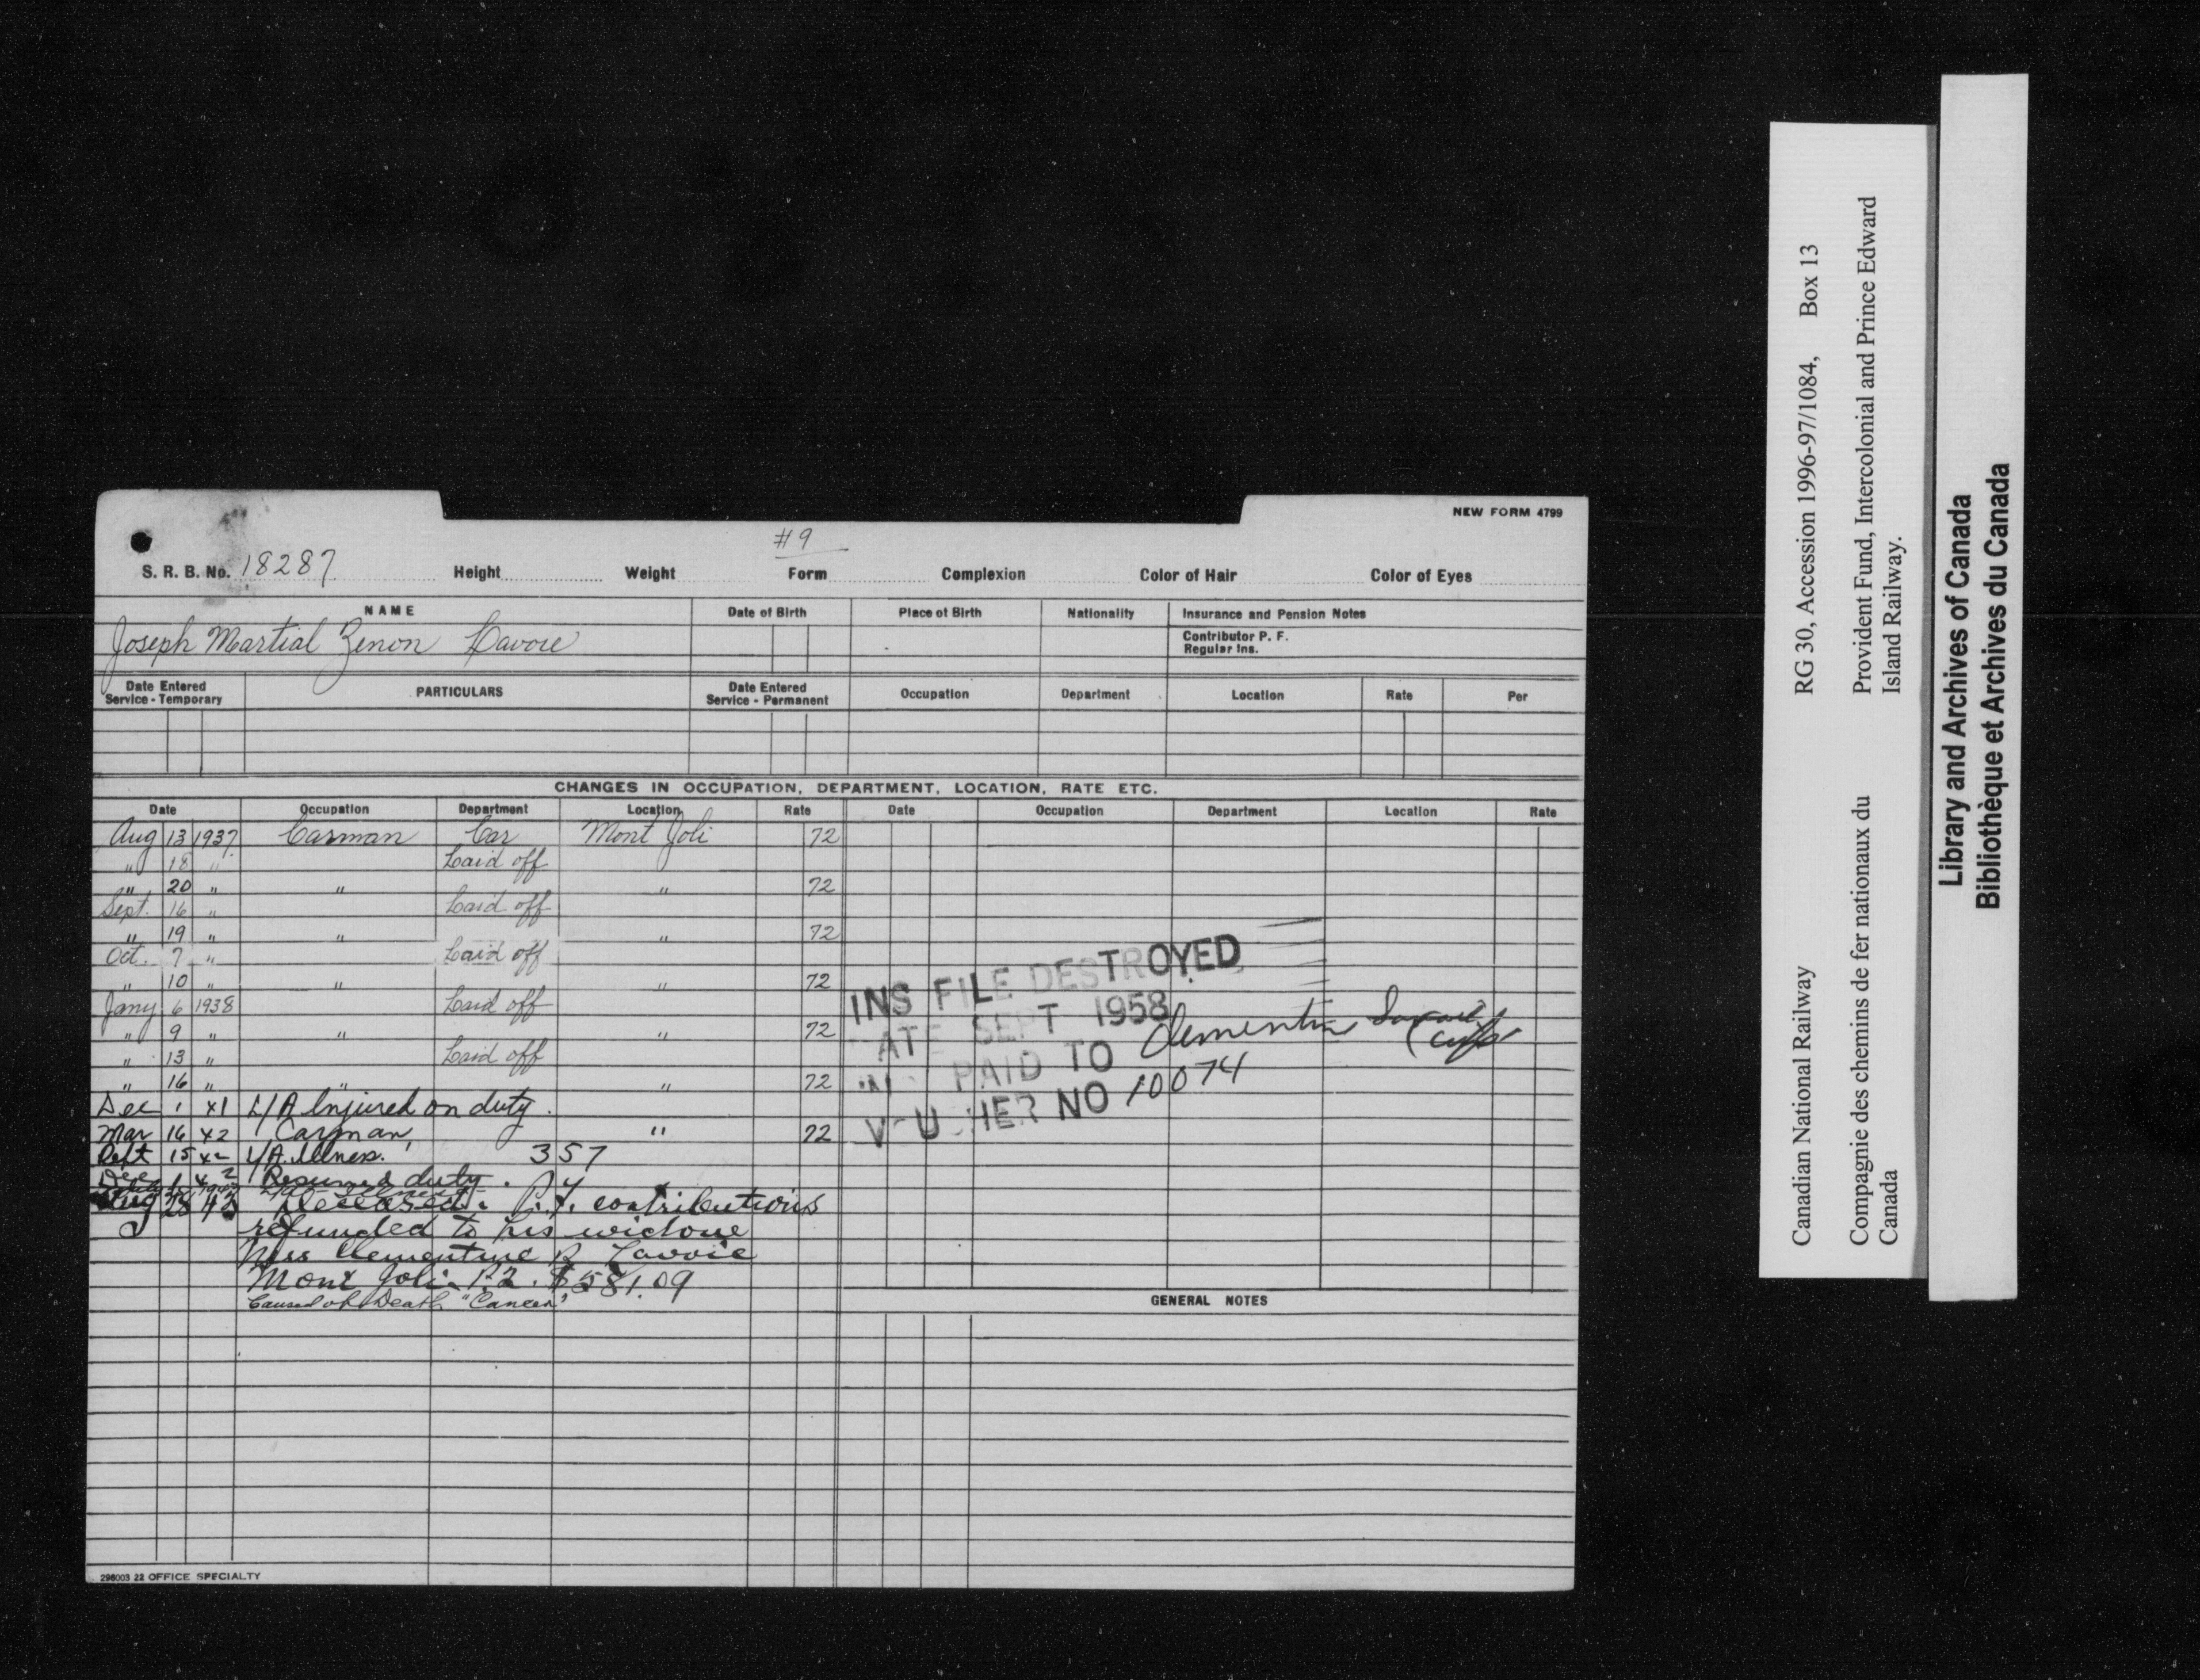 NEW FORM 4799
#9
S. R. B. No. 18287 Height Weight Form Complexion Color of Hair Color of Eyes
NAME Date of Birth Place of Birth Nationality Insurance and Pension Notes
Joseph Martial Zenon Lavoie
Contributor P. F.
Regular Ins.
Date Entered Service - Temporary PARTICULARS Date Entered Service - Permanent Occupation Department Location Rate Per
CHANGES IN OCCUPATION, DEPARTMENT, LOCATION, RATE ETC.
Date Occupation Department Location Rate Date Occupation Department Location Rate
Aug 13 1937 Carman Car Mont Joli 72
" 18 " Laid off
" 20 " " " 72
Sept. 16 " Laid off
" 19 " " " 72
Oct. 7 " Laid off
" 10 " " " 72
Jany 6 1938 Laid off
" 9 " " " 72
" 13 " Laid off
" 16 " " " 72
Dec 1 41 L/A Injured on duty.
Mar 16 42 Carman " 72
Sept 15 42 L/A Illness. 357
Dec 1 42 Resumed duty.
Aug 28 43 Deceased. P.F. contributions
refunded to his widow
Mrs Clementine R Lavoie
Mont Joli P.Q. $581.09
Caused of Death "Cancer"
INS FILE DESTROYED
ATE SEPT 1958
PAID TO Clementine Lavoie (wife)
VOUCHER NO 10074
GENERAL NOTES
298003 22 OFFICE SPECIALTY
Canadian National Railway RG 30, Accession 1996-97/1084, Box 13
Compagnie des chemins de fer nationaux du Canada
Provident Fund, Intercolonial and Prince Edward Island Railway.
Library and Archives of Canada
Bibliothèque et Archives du Canada